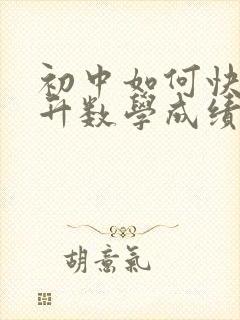 初中如何快
升数学成绩
胡意氣